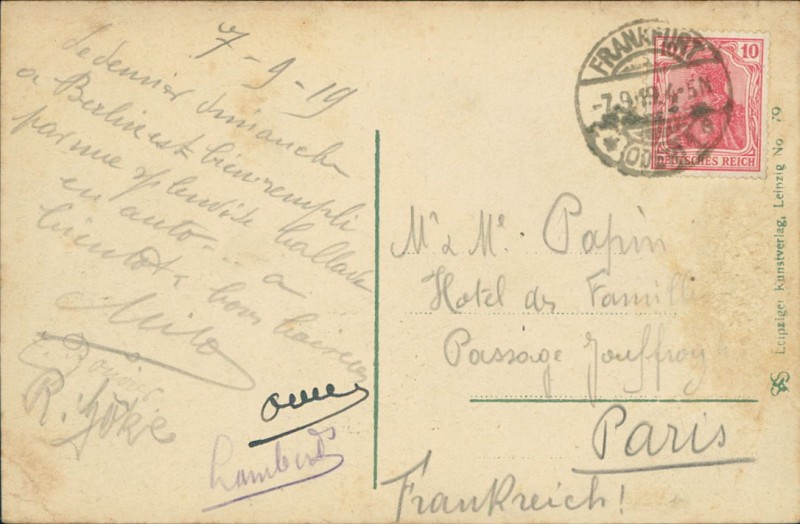 7-9-19
Le dernier dimanche
a Berlin est bien rempli
par une splendide ballade
en auto... a
bientot & bons baisers
Milo
R. Göke
Lambert
FRANKFURT
-7.9.19.4-5N
* (ODER)
10
DEUTSCHES REICH
Mr & Me. Papin
Hotel des Famill
Passage Jouffroy
Paris
Frankreich!
Leipziger Kunstverlag, Leipzig No. 79